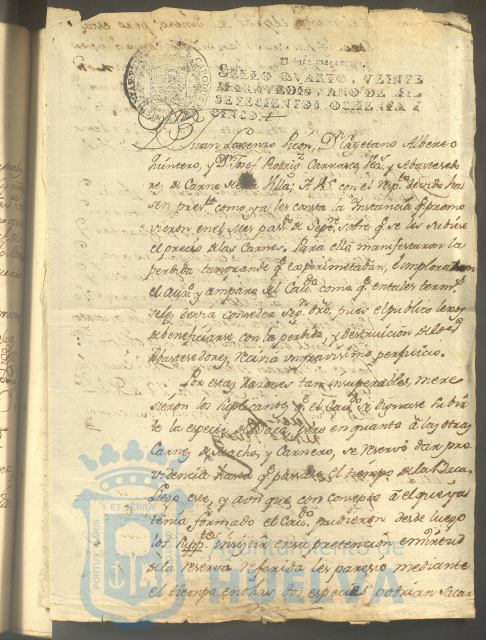 SELLO QVARTO, VEINTE
MARAVEDIS, AÑO DE MIL
SETECIENTOS OCHENTA Y
CINCO.
Juan Lorenzo Picon, Dn. Cayetano Alberto
Quintero, y Dn. Josef Rodrig.
res de Carne desta Villa, A VS con el resp.to devido ha
sen pres.te como ya les consta la Instancia q.e promo
vieron en el Mes pas.do de Sep.re sobre q.e se les subiese
el precio de las Carnes. Para ella manifestaron la
perdida tan grande q.e experimentaban, è imploraron
el aux.o y amparo del Cav.do como q.e en tales term.s
seles devia conceder pues el publico lexos
de beneficiarse con la perdida, y destruicion de los
Abastesedores, gravissimo perjuicio.
Por estas razones tan insuperables, mere
sieron los suplicantes q.e el Cav.do se dignase subir
le la especie de Baca, pero en quanto à las otras
Carnes de Macho, y Carnero, se reservò dar pro
videncia hasta q.e pasase el tiempo de la Baca.
Luego este, y aunque con consepto à el que ya
tenia formado el Cav.do pudieron desde luego
los Supp.tes insistir en su pretencion en virtud
de la reserva referida les paresio mediante
el tiempo en otras dos especies podrian sacar
ET TERRÆ
PORTUS MARIS
Ayuntamiento de
HUELVA